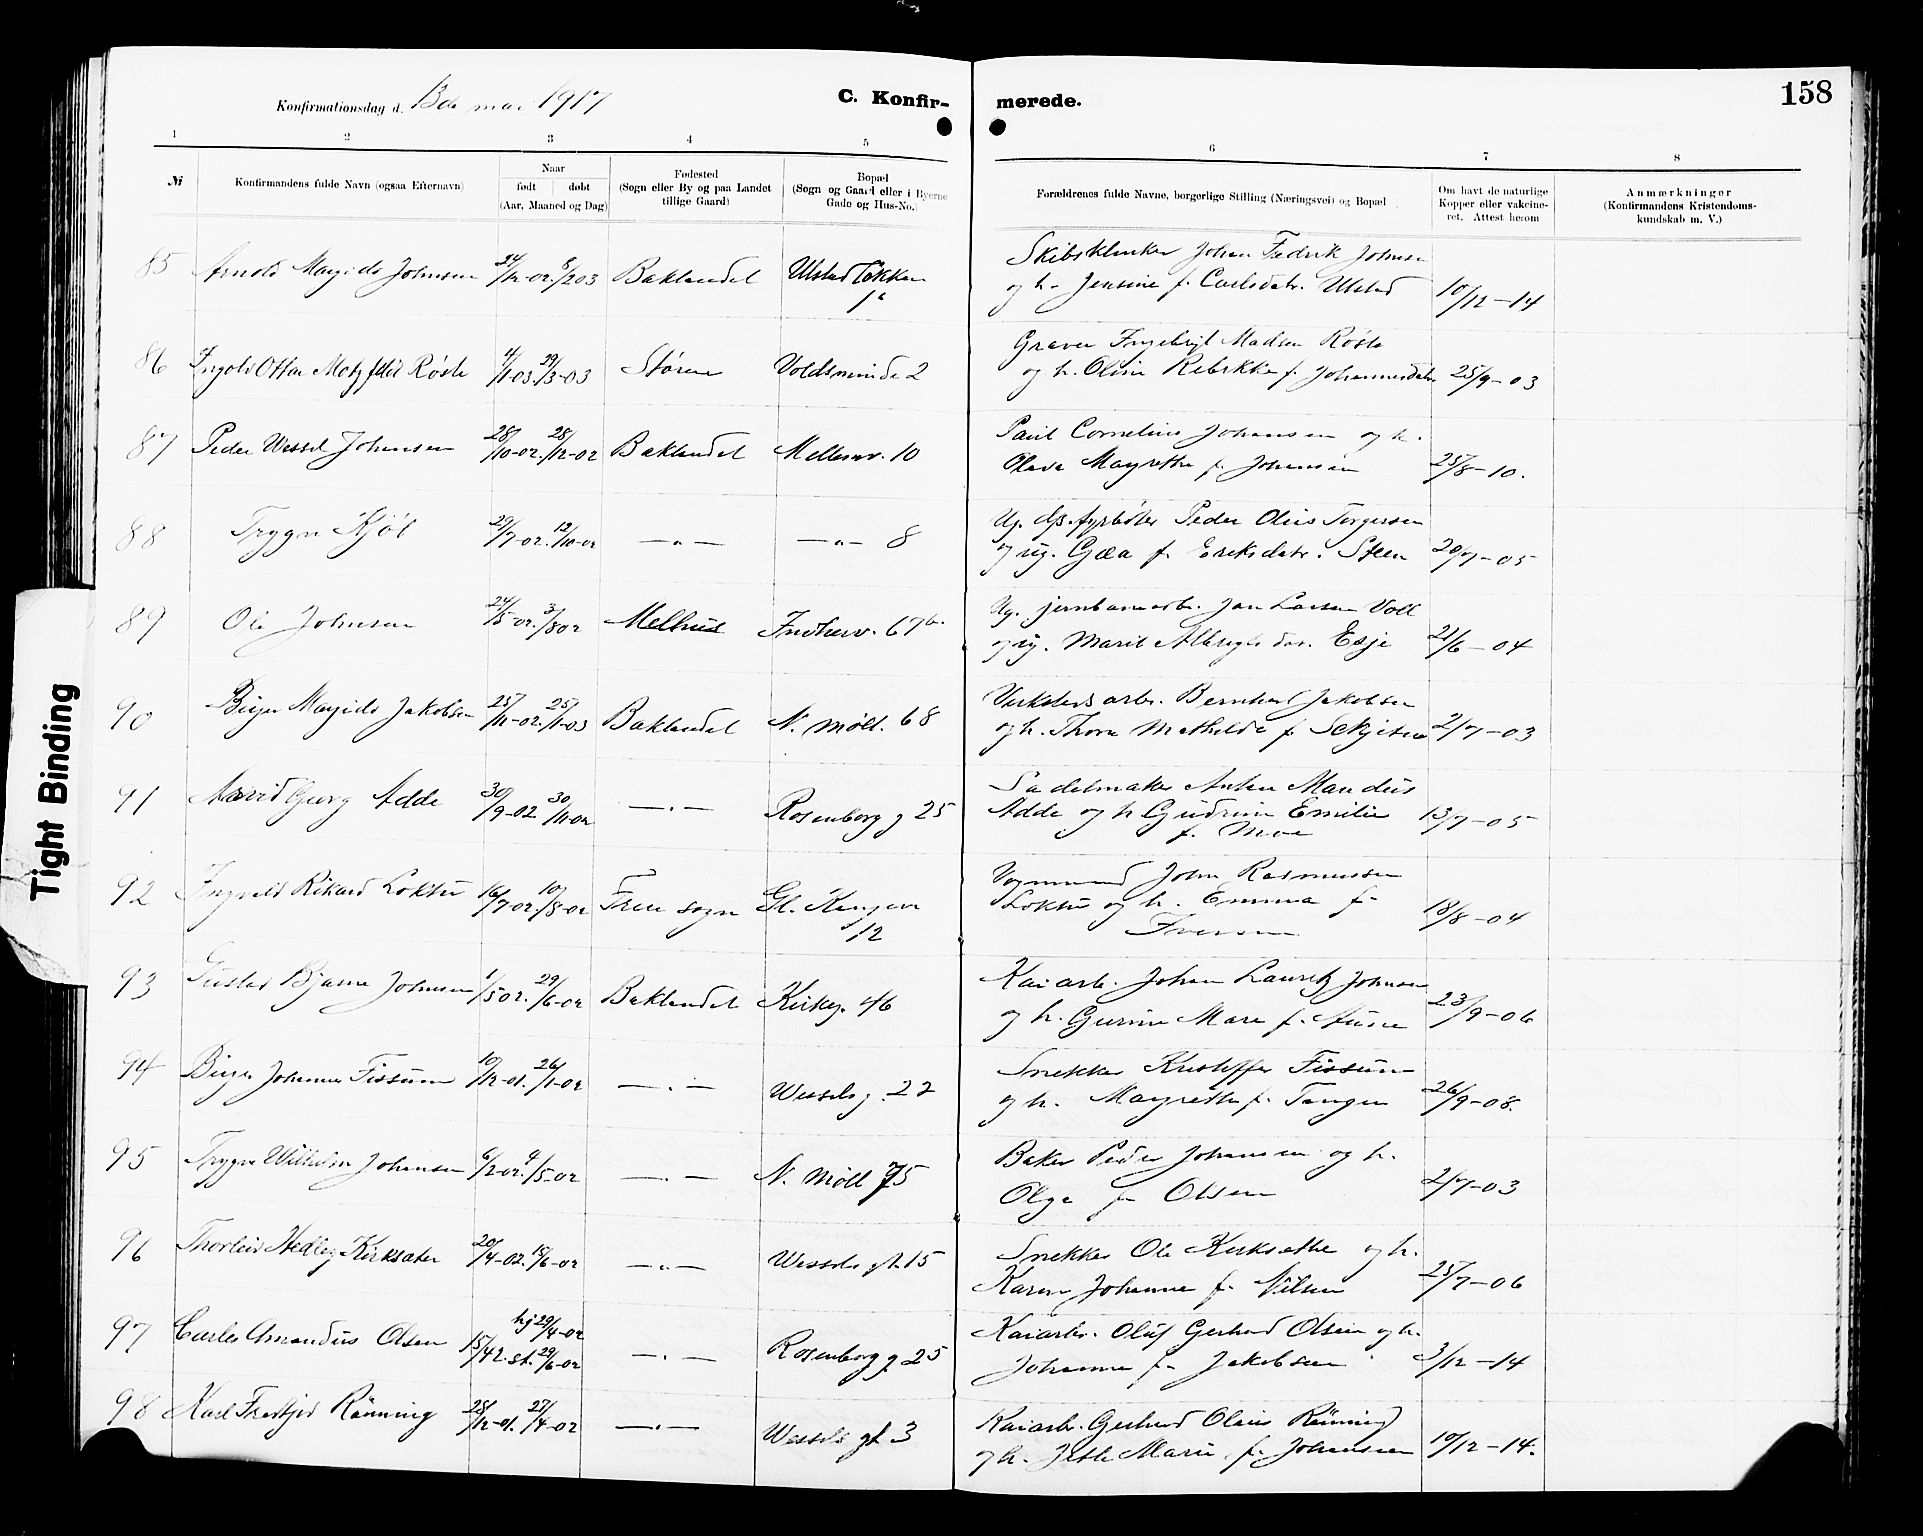 158
Konfirmationsdag d. 13de mai 1917
C. Konfir- merede.
1 2 3 4 5 6 7 8
№
Konfirmandens fulde Navn (ogsaa Efternavn)
Naar
født døbt
(Aar, Maaned og Dag)
Fødested
(Sogn eller By og paa Landet
tillige Gaard)
Bopæl
(Sogn og Gaard eller i Byerne
Gade og Hus-No.)
Forældrenes fulde Navne, borgerlige Stilling (Næringsvei) og Bopæl
Om havt de naturlige
Kopper eller vakcine-
ret. Attest herom
Anmærkninger
(Konfirmandens Kristendoms-
kundskab m. V.)
85 Arnold Magids Johnsen 24/12-02. 8/2 03 Baklandet Ulstadløkken
1a
Johan Fedrik Johnsen
og h. Jensine f. Carlsdatr. Ulstad 10/12-14
86 Ingolv Ottar Røste 4/1-03. 29/3-03 Støren Voldsminde 2
Graver Ingebrigt Madsen Røste
og h. Oline Rebekka f. Johannesdatr. 25/9-03
87 Peder Wessel Johansen 28/10-02. 28/12-02 Baklandet Mellemv. 10
Paul Cornelius Johansen og h.
Olava Magrethe f. Johansen 25/8-10.
88 Trygve Kjøl 29/7-02. 12/10-02 —„— —„— 8
Ug. dps. fyrbøter Peder Olius Torgersen
og ug. Gjøa f. Eriksdatr. Steen 20/7-05
89 Ole Johnsen 24/5-02. 3/8 02 Melhus Indherv. 67b.
Ug. jernbanearb. Jon Larsen Voll
og ug. Marit Esje 21/6-04
90 Birger Magids Jakobsen 25/11-02. 25/1-03 Baklandet N. Møll. 68
Verkstedsarb. Bernhard Jakobsen
og h. Thora Mathilde f. 2/7-03
91 Georg Adde 30/9-02 30/11-02 —„— Rosenborg g 25
Sadelmaker Anton Mandius
Adde og h Gudrun Emilie
f. Moe 13/7-05
92 Ingvald Rikard Loktu 16/7-02. 10/8-02 Frei sogn Gl. Kongev
12
Vognmand John Rasmussen
Loktu og h. Emma f.
Iversen 18/8-04
93 Gustav Bjarne Johnsen 1/5 02. 29/6-02 Baklandet Kirkeg. 46
Kaiarb. Johan Lauritz Johnsen
og h. Gurine Mare f. 23/9-06
94 Birger Johannes Fissum 10/12-01. 26/1-02 —„— Wessels g. 22
Snekker Kristoffer Fissum
og h. Magrethe f. Tangen 26/9-08.
95 Trygve Wilhelm Johansen 6/2-02. 4/5-02 —„— N. Møll 75
Baker Peder Johansen og h.
Olga f. Olsen 2/7-03
96 Thorleiv Hedley Kirksæter 20/4-02. 15/6-02 —„— Wessels gt. 15
Snekker Ole Kirksæther og h.
Karen Johanne f. Nilsen 25/7-06
97 Carles Amandus Olsen 15/4 2. hj 29/4-02
st. 29/6-02 —„— Rosenborg g 25
Kaiarb. Oluf Gerhard Olsen og h.
Johanna f. Jakobsen 3/12-14
98 Karl Fredtjof Rønning 28/12-01. 27/4-02 —„— Wessels gt 3
Kaiarb. Gerhard Olaus Rønning
og h. Jette Marie f. Johansen 10/12-14.
Tight Binding